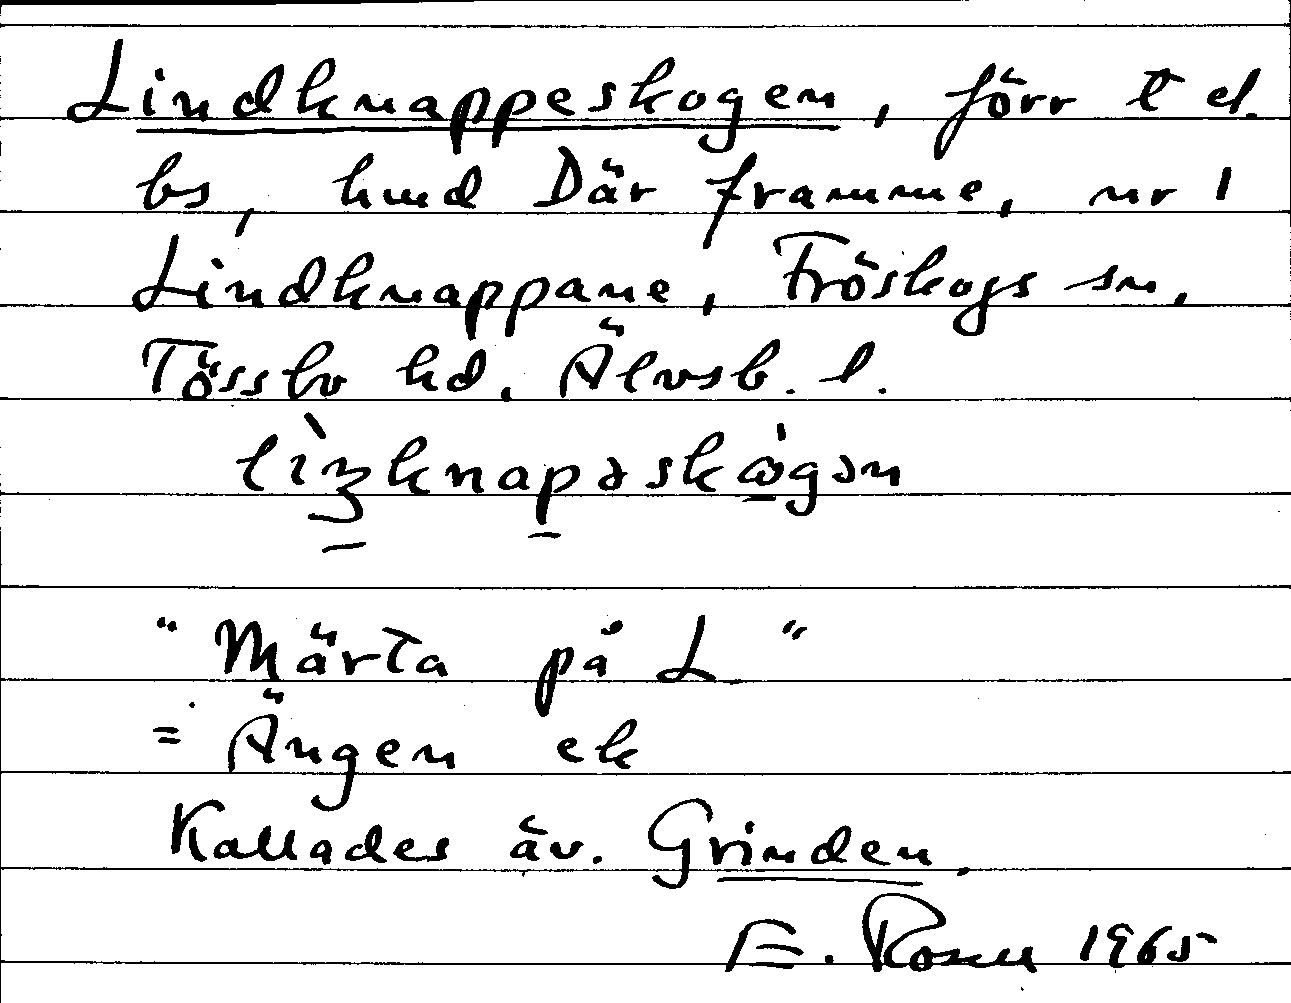 Lindknappeskogen, förr t el.
bs, hmd Där framme, nr 1
Lindknappane, Fröskogs sn,
Tössbo hd. Älvsb. l.
"Märta på L"
= Ängen ek
Kallades äv. Grinden.
E. Rosen 1965